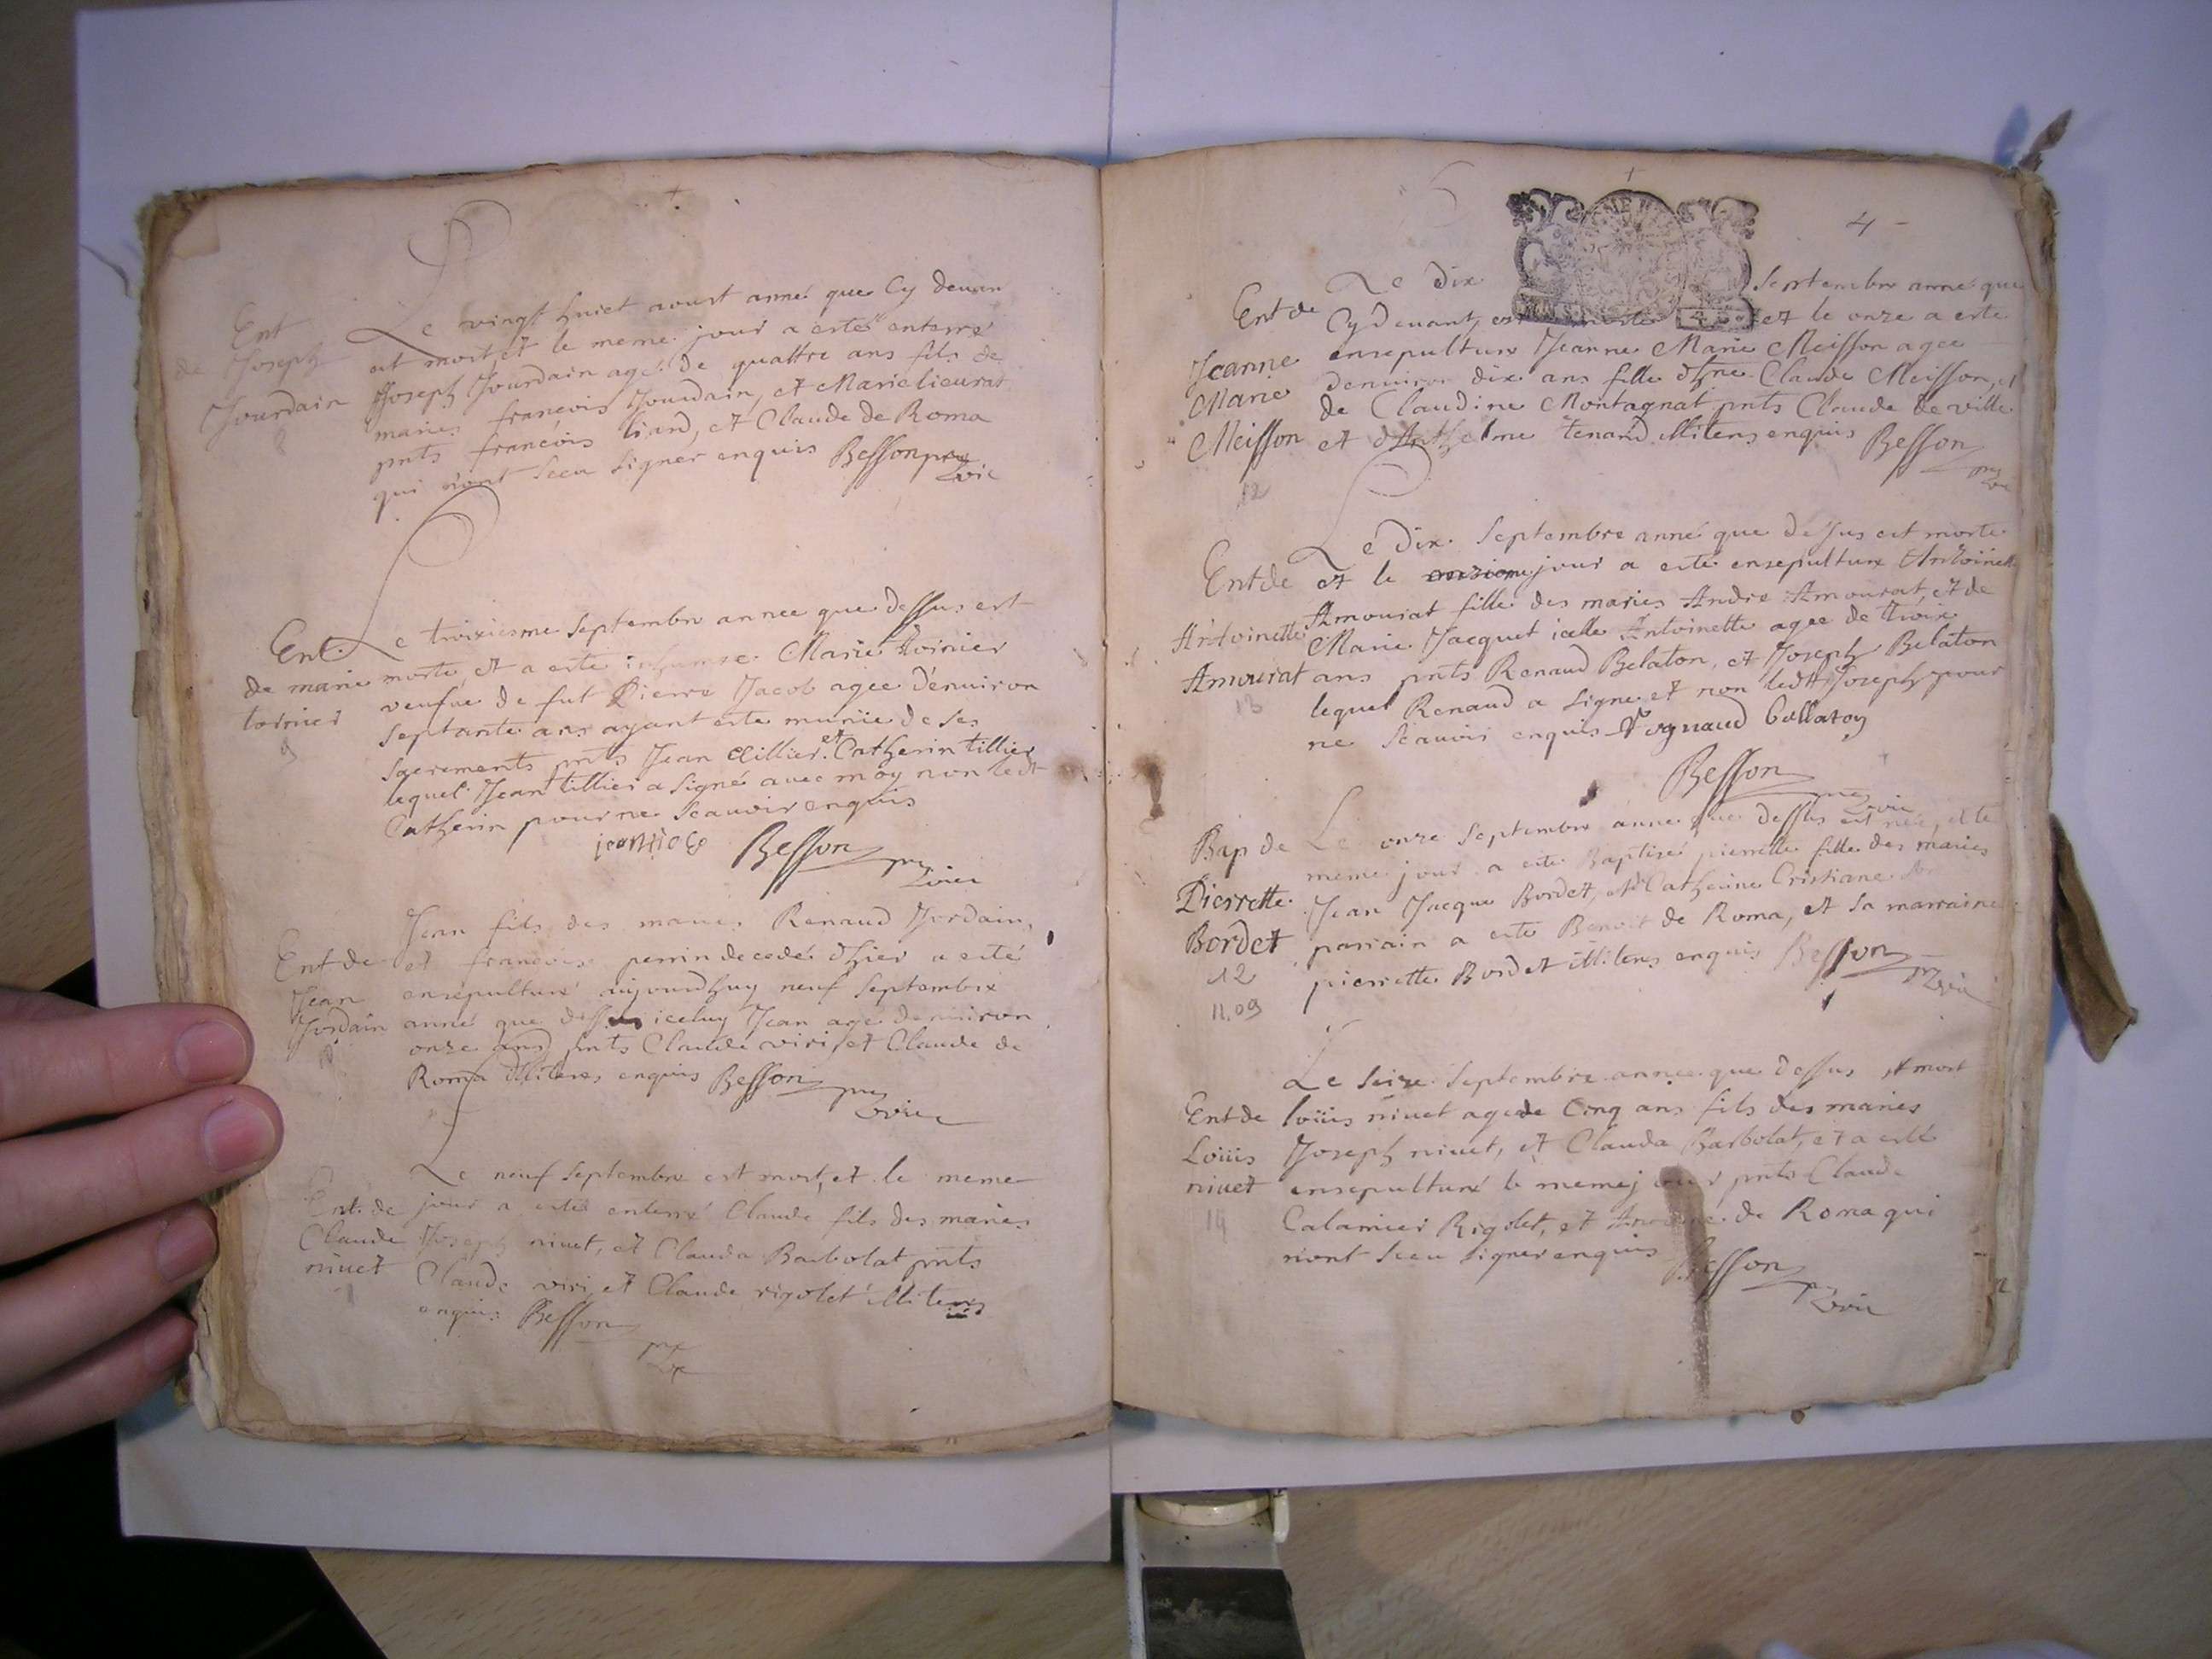 Ent
de Joseph
Jourdain
8
Le vingt huict aoust anné que Cy deuan
est mort, et le meme jour a esté enterré
Joseph Jourdain agé de quattre ans fils de
maries francois Jourdain, et Marie lieurat
pnts francois liard, et Claude de Roma
qui n'ont sceu signer enquis Besson pre
vic
Ent
de marie
toinier
9
Le troixiesme septembre annee que dessus est
morte, et a esté inhumee Marie Toinier
veufue de fut Pierre Jacob agee d'enuiron
septante ans ayant este munie de ses
sacrements pnts Jean tillier et Catherin tillier
lequel Jean tillier a signé auec moy non ledt
Catherin pour ne scauoir enquis
Besson pre
vicr
Ent de
Jean
Jordain
Jean fils des maries Renaud Jordain,
et francoise perrin decedé d'hier a esté
ensepulturé aujourdhuy neuf septembre
anné que dessus iceluy Jean agé denuiron
onze ans pnts Claude viri, et Claude de
Roma illiteres enquis Besson pre
vic
Ent de
Claude
niuet
Le neuf septembre est mort, et le meme
jour a esté enterré Claude fils des maries
Joseph niuet, et Clauda Barbolat pnts
Claude viri, et Claude rigolet illiters
enquis Besson
pre
vic
4
Ent de
Jeanne
Marie
Meisson
12
Le dix septembre anné que
Cy deuant, est morte et le onze a este
ensepulture Jeanne Marie Meisson agee
denuiron dix ans fille d'hne Claude Meisson, et
de Claudine Montagnat pnts Claude de ville
et d'Anthelme tenard illiters enquis Besson
pre
vic
Ent de
Antoinette
Amourat
13
Le dix septembre anné que desus est morte
et le onzieme jour a esté ensepulture Antoinette
Amourat fille des maries Andre Amourat, et de
Marie Jacquet icelle Antoinette agee de troix
ans pnts Renaud Belaton, et Joseph Belaton
lequel Renaud a signe et non ledt Joseph pour
ne scauoir enquis Regnaud bellaton
Besson
pre vic
Bap de
Pierrette
Bordet
12
11.09
Le onze septembre anne que dessus est née, et le
meme jour a esté Baptisé pierrette fille des maries
Jean Jacque Bordet, et Catherine Cristiane
parrain a esté Benoit de Roma, et sa marraine
pierrette Bordet illiters enquis Besson
pre vic
Ent de
Loüis
niuet
14
Le seize septembre annee que dessus et mort
loüis niuet age de Cinq ans fils des maries
Joseph niuet, et Clauda Barbolat, et a esté
ensepulturé le meme jour pnts Claude
Calamier Rigolet, et de Roma qui
n'ont sceu signer enquis Besson
pre
vic